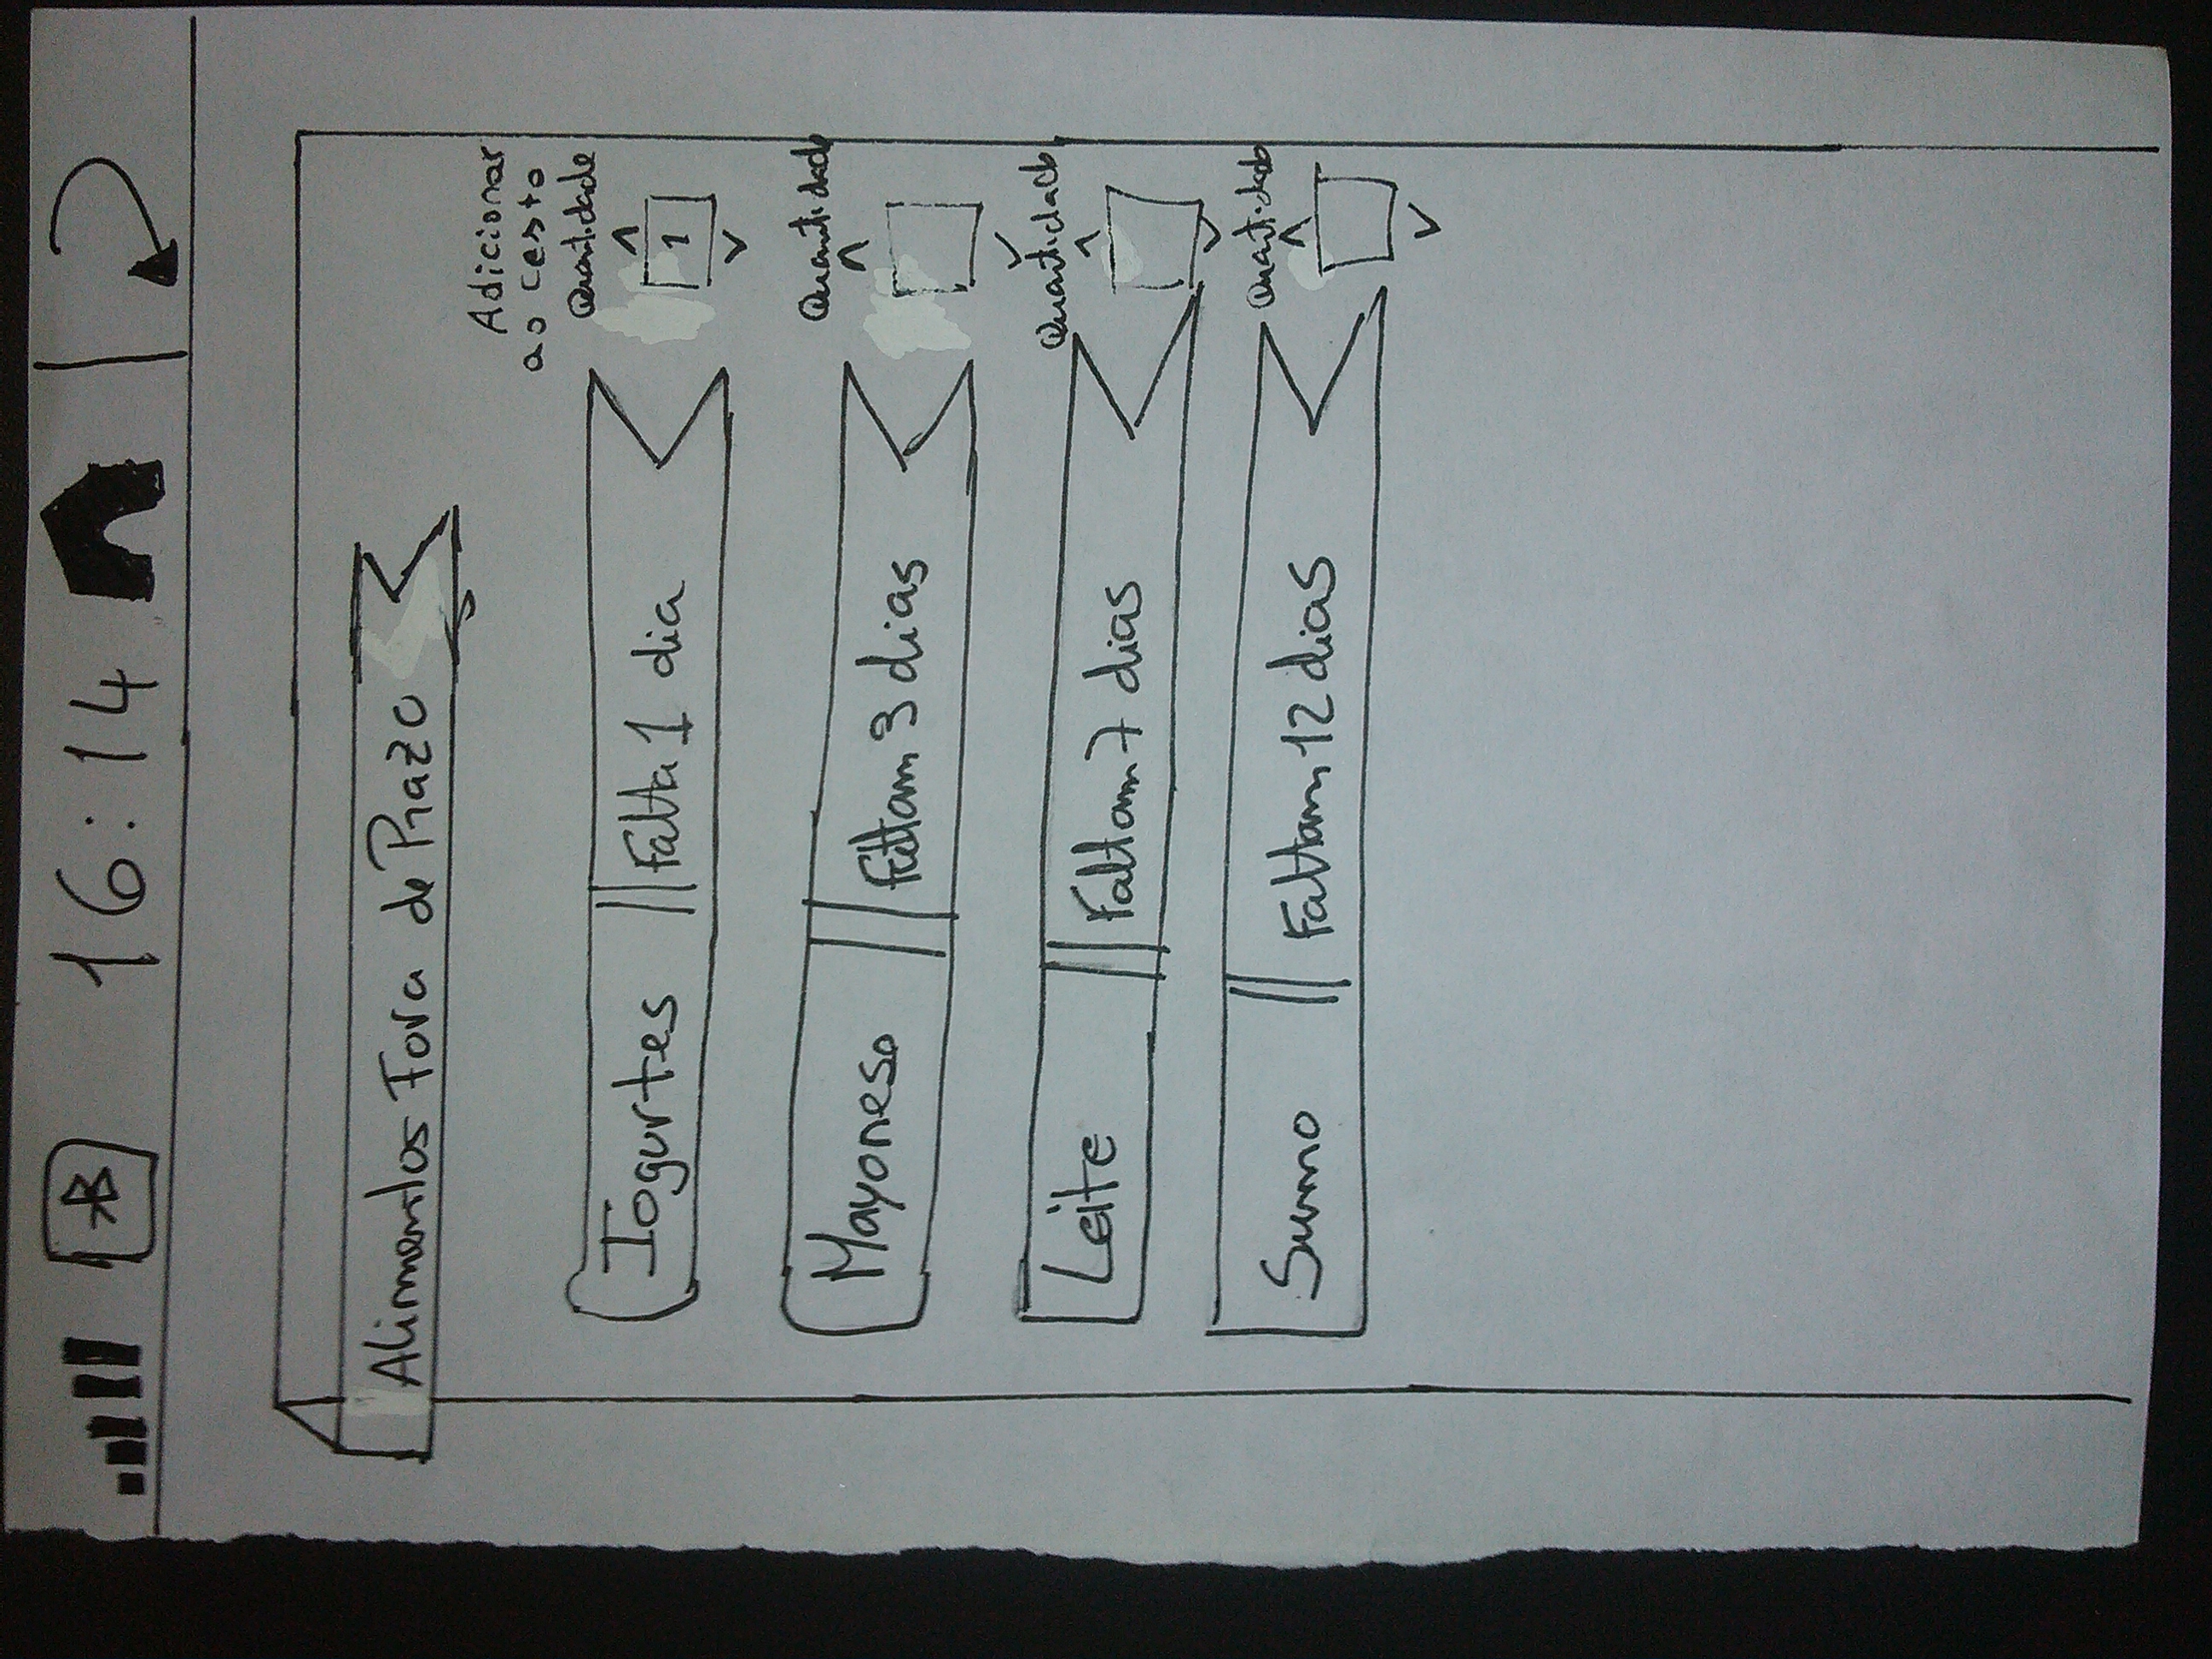 16:14
Alimentos Fora de Prazo
Adicionar
ao cesto
Quantidade
Iogurtes || Falta 1 dia
1
Quantidade
Mayonese || Faltam 3 dias
Quantidade
Leite || Faltam 7 dias
Quantidade
Sumo || Faltam 12 dias